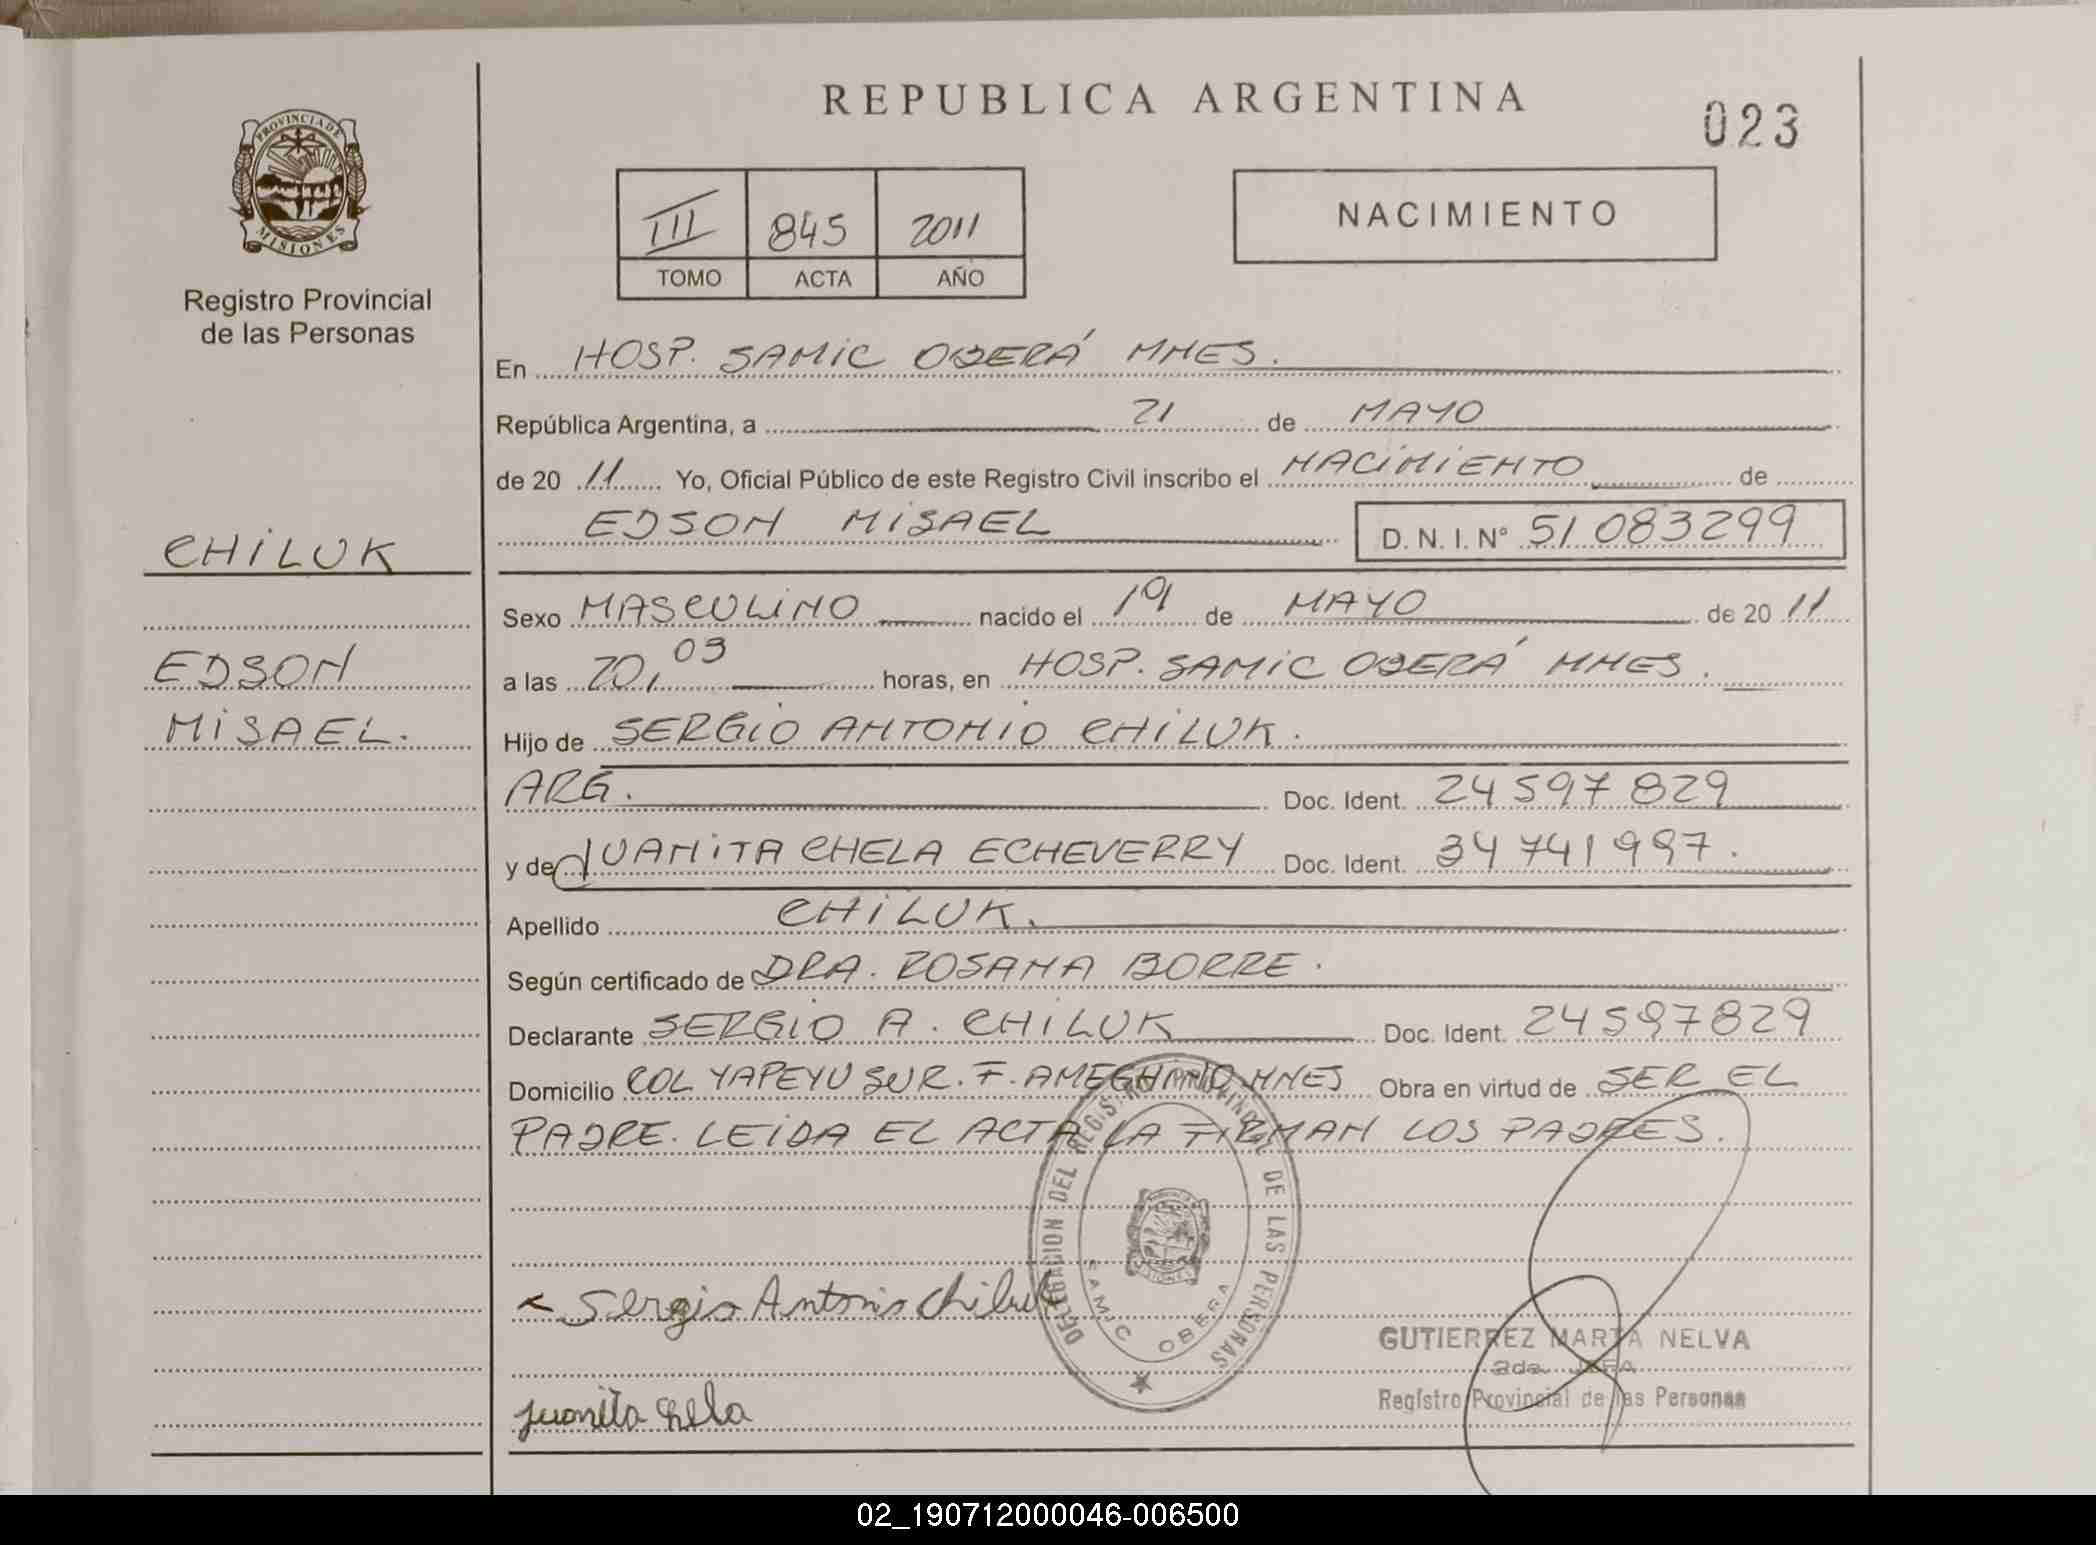 REPUBLICA ARGENTINA
023
PROVINCIA DE
MISIONES
Registro Provincial
de las Personas
III 845 2011
TOMO ACTA AÑO
NACIMIENTO
En HOSP. SAMIC OBERÁ MNES.
República Argentina, a 21 de MAYO
de 20 11 Yo, Oficial Público de este Registro Civil inscribo el NACIMIENTO de
EDSON MISAEL D. N. I. N° 51 083299
CHILUK
EDSON
MISAEL.
Sexo MASCULINO nacido el 19 de MAYO de 20 11
a las 20, 03 horas, en HOSP. SAMIC OBERÁ MNES.
Hijo de SERGIO ANTONIO CHILUK.
ARG. Doc. Ident. 24 597 829
y de JUANITA CHELA ECHEVERRY Doc. Ident. 34 741 997.
Apellido CHILUK.
Según certificado de DRA. ROSANA BORRE.
Declarante SERGIO A. CHILUK Doc. Ident. 24597829
Domicilio COL YAPEYU SUR. F. AMEGHINO MNES Obra en virtud de SER EL
PADRE. LEIDA EL ACTA LA FIRMAN LOS PADRES.
DELEGACION DEL REGISTRO PROVINCIAL DE LAS PERSONAS
SAMIC OBERA
MISIONES
Sergio Antonio Chiluk
Juanita Chela
GUTIERREZ MARTA NELVA
2da. JEFA
Registro Provincial de las Personas
02_190712000046-006500